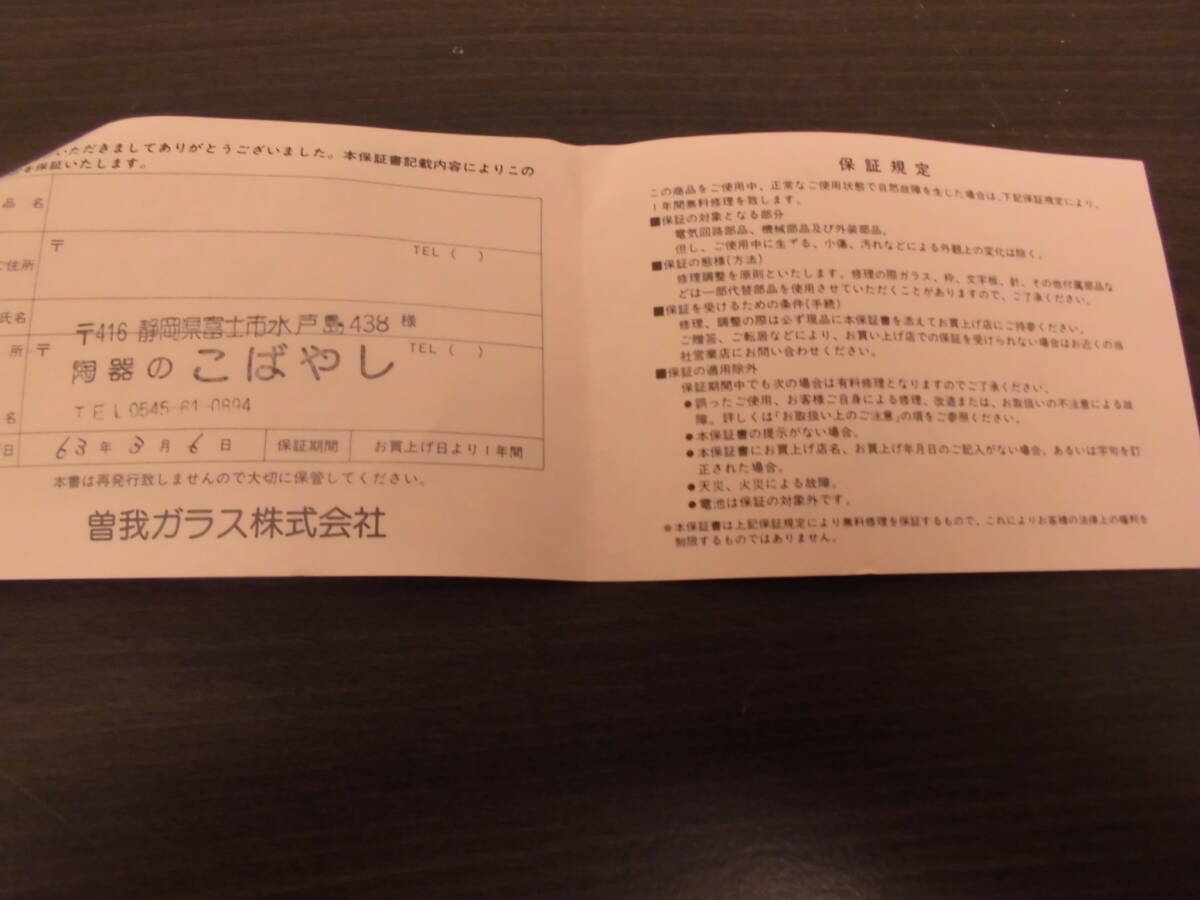 いただきましてありがとうございました。本保証書記載内容によりこの
保証いたします。
品 名
〒 TEL ( )
ご住所
氏名
様
〒416 静岡県富士市水戸島438
所 〒 TEL ( )
陶器の こばやし
TEL 0545-61-0894
名
日 63 年 3 月 6 日 保証期間 お買上げ日より1年間
本書は再発行致しませんので大切に保管してください。
曽我ガラス株式会社
保証規定
この商品をご使用中、正常なご使用状態で自然故障を生じた場合は、下記保証規定により、
1年間無料修理を致します。
■保証の対象となる部分
電気回路部品、機械部品及び外装部品。
但し、ご使用中に生ずる、小傷、汚れなどによる外観上の変化は除く。
■保証の態様(方法)
修理調整を原則といたします。修理の際ガラス、枠、文字板、針、その他付属部品な
どは一部代替部品を使用させていただくことがありますので、ご了承ください。
■保証を受けるための条件(手続)
修理、調整の際は必ず現品に本保証書を添えてお買上げ店にご持参ください。
ご贈答、ご転居などにより、お買い上げ店での保証を受けられない場合はお近くの当
社営業店にお問い合わせください。
■保証の適用除外
保証期間中でも次の場合は有料修理となりますのでご了承ください。
●誤ったご使用、お客様ご自身による修理、改造または、お取扱いの不注意による故
障。詳しくは「お取扱い上のご注意」の項をご参照ください。
●本保証書の提示がない場合。
●本保証書にお買上げ店名、お買上げ年月日のご記入がない場合、あるいは字句を訂
正された場合。
●天災、火災による故障。
●電池は保証の対象外です。
※本保証書は上記保証規定により無料修理を保証するもので、これによりお客様の法律上の権利を
制限するものではありません。